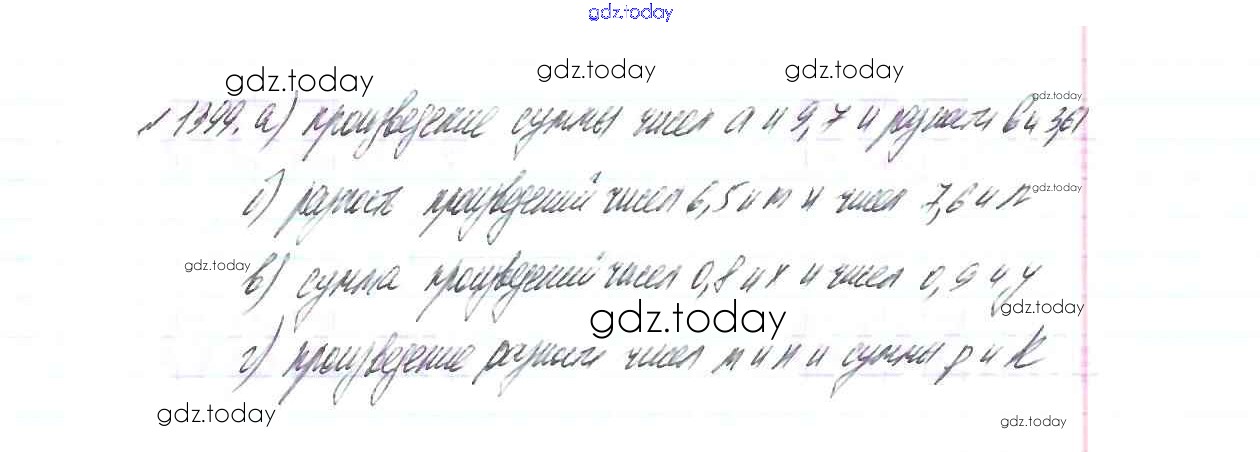 gdz.today
gdz.today gdz.today gdz.today
gdz.today
№1399. а) произведение суммы чисел а и 9,7 и разности b и 3,61
б) разность произведений чисел 6,5 и m и чисел 7,6 и n
gdz.today
gdz.today
в) сумма произведений чисел 0,8 и x и чисел 0,9 и y
gdz.today
gdz.today
г) произведение разности чисел m и n и суммы p и k
gdz.today
gdz.today